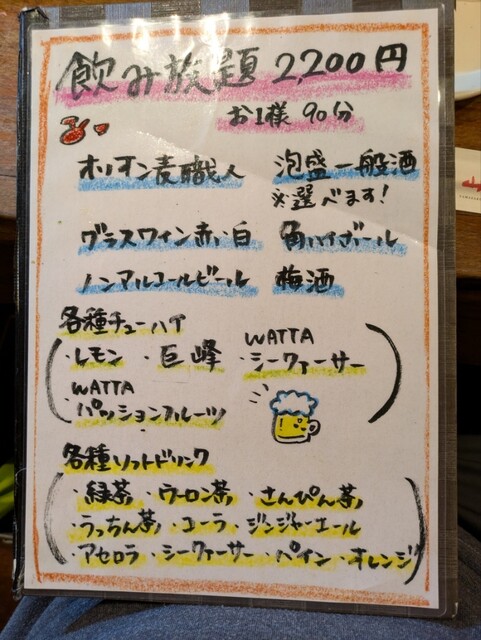 飲み放題 2,200円
お1様 90分
オリオン麦職人 泡盛一般酒
※選べます!
グラスワイン赤い白 角ハイボール
ノンアルコールビール 梅酒
各種チューハイ
・レモン ・巨峰 WATTA シークァーサー
WATTA
・パッションフルーツ
各種ソフトドリンク
・緑茶 ・ウーロン茶 ・さんぴん茶
・うっちん茶 ・コーラ ・ジンジャーエール
・アセロラ ・シークァーサー ・パイン ・オレンジ